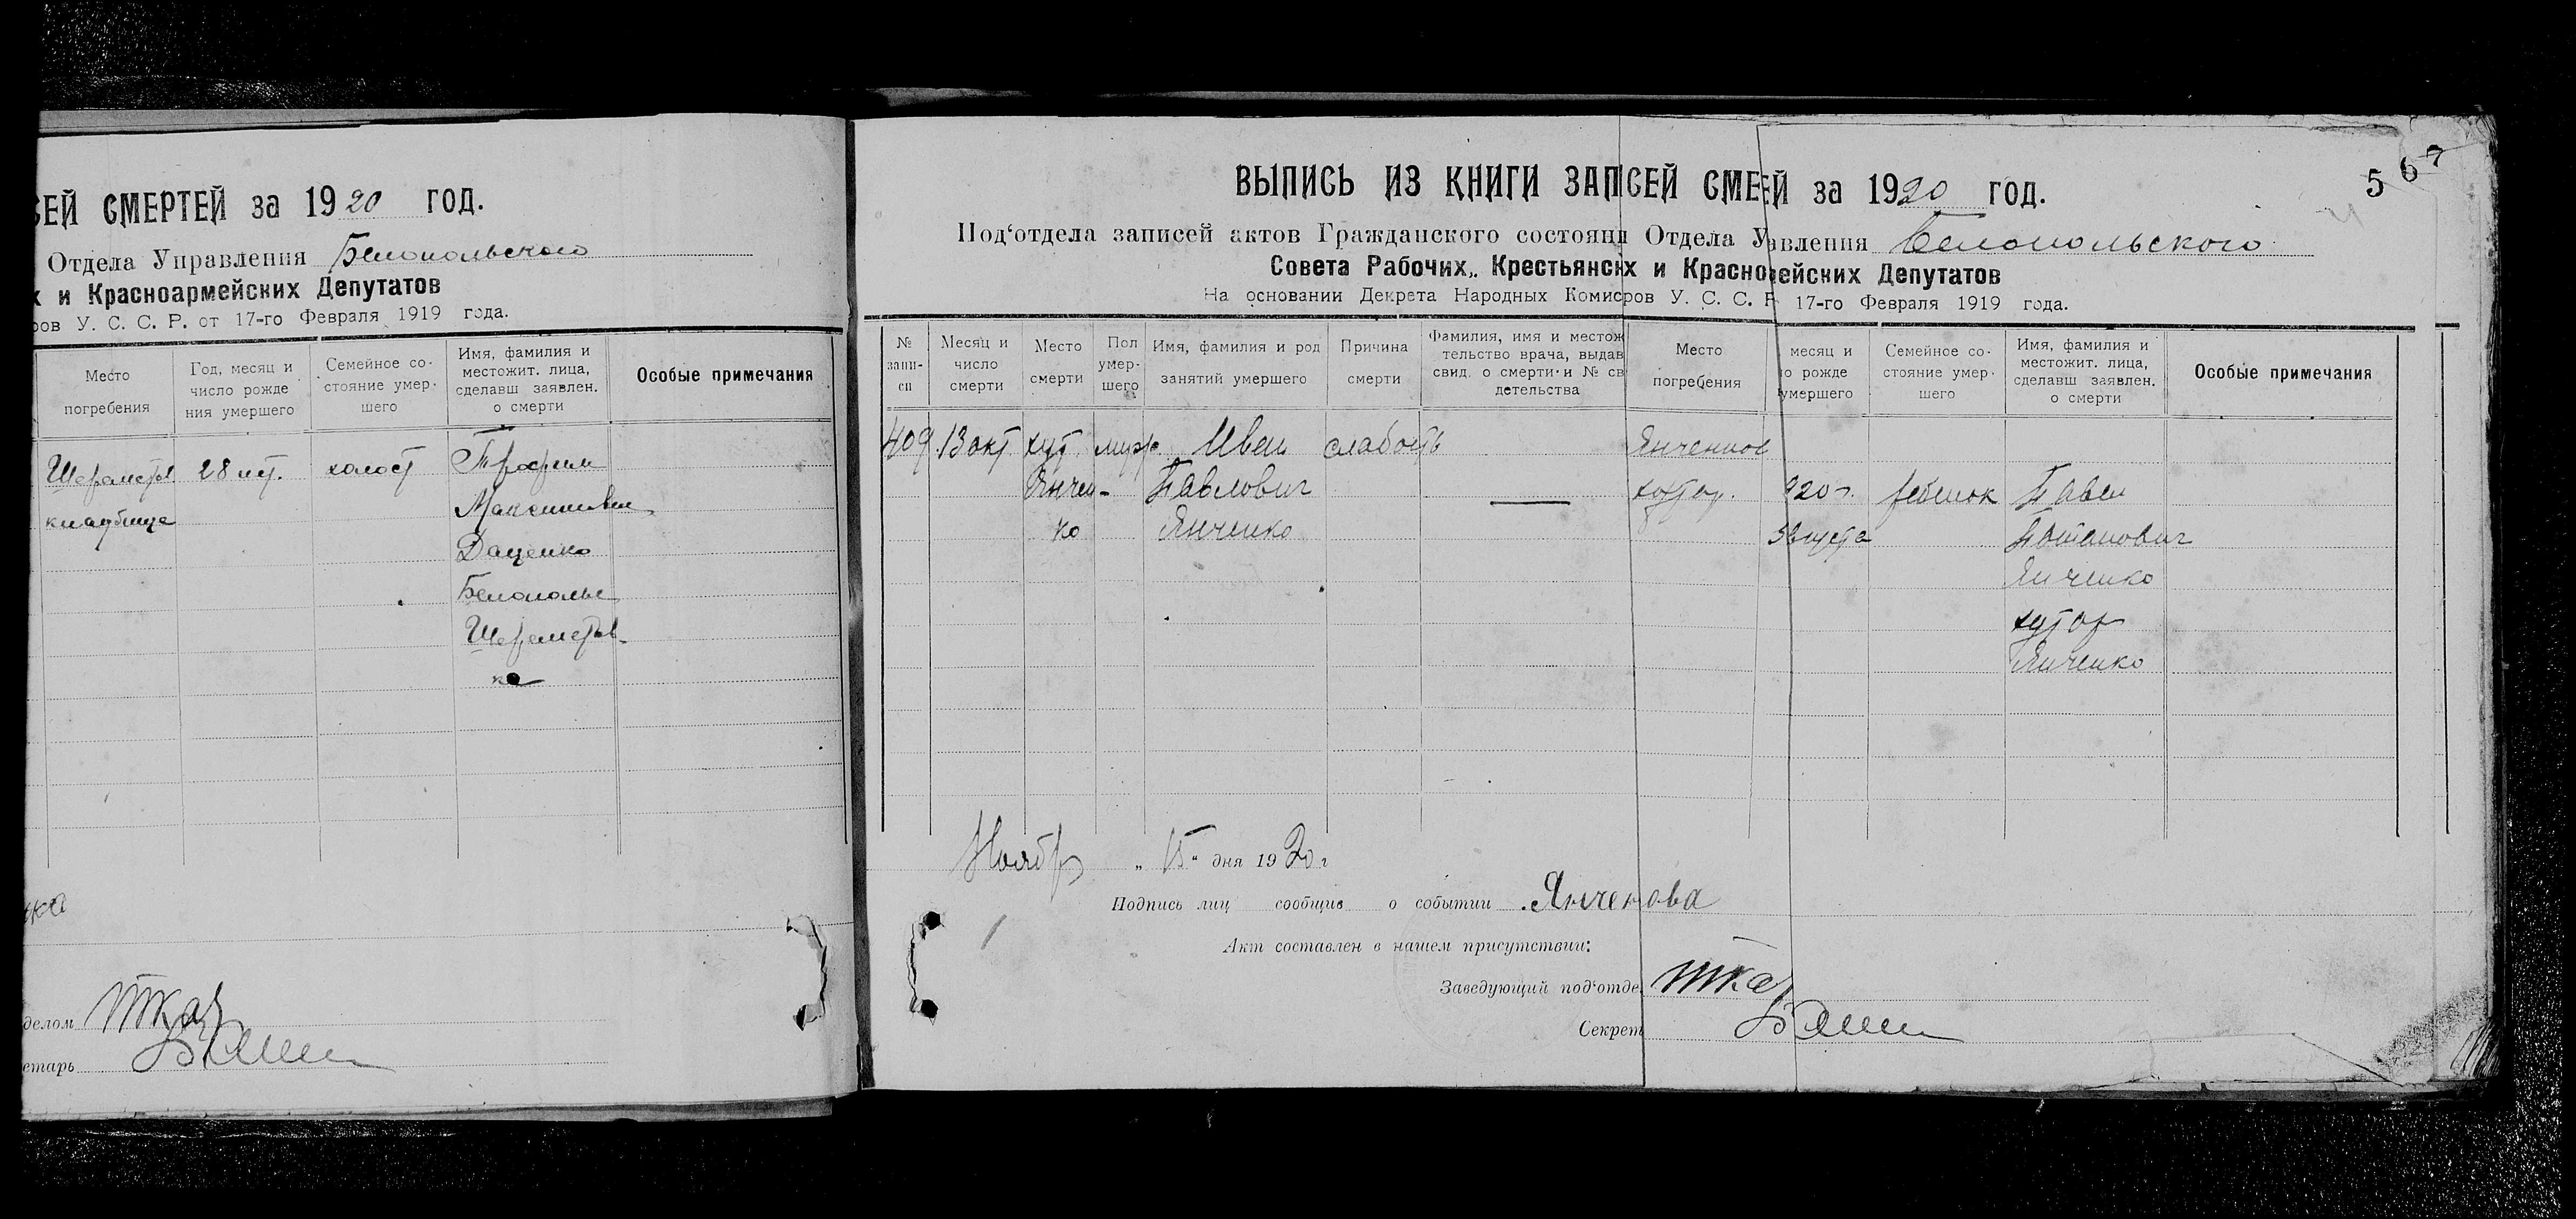 СЕЙ СМЕРТЕЙ за 1920 ГОД.
Отдела Управления Белопольского
х и Красноармейских Депутатов
ров У. С. С. Р. от 17-го Февраля 1919 года.
Место погребения
Год, месяц и число рожде ния умершего
Семейное со- стояние умер- шего
Имя, фамилия и местожит. лица, сделавш заявлен. о смерти
Особые примечания
Шереметов 28 лет. холост Трофим
кладбище
Даценко
Белополье
Шереметов-
ка
делом Ткач
етарь
567
ВЫПИСЬ ИЗ КНИГИ ЗАПСЕЙ СМЕЕЙ за 1920 ГОД.
Под‘отдела записей актов Гражданского состояни Отдела Уавления Белопольского
Совета Рабочих,, Крестьянсх и Красноейских Депутатов
На основании Декрета Народных Комисров У. С. С. Р 17-го Февраля 1919 года.
№ запи- си
Месяц и число смерти
Место смерти
Пол умер- шего
Имя, фамилия и род занятий умершего
Причина смерти
Фамилия, имя и местож тельство врача, выдав свид. о смерти и № св детельства
Место погребения
месяц и о рожде умершего
Семейное со- стояние умер- шего
Имя, фамилия и местожит. лица, сделавш заявлен. о смерти
Особые примечания
409 13 окт. хут. муж. Иван слабость Янченков
Янчен- Павлович хутор. 920 г. ребенок Павел
ко Янченко Августа Потапович
Янченко
хутор
Янченко
Ноябр „ 15 “ дня 1920 г
Подпись лиц сообщив о событии Янченкова
Акт составлен в нашем присутствии:
Заведующий под‘отде Ткач
Секрет